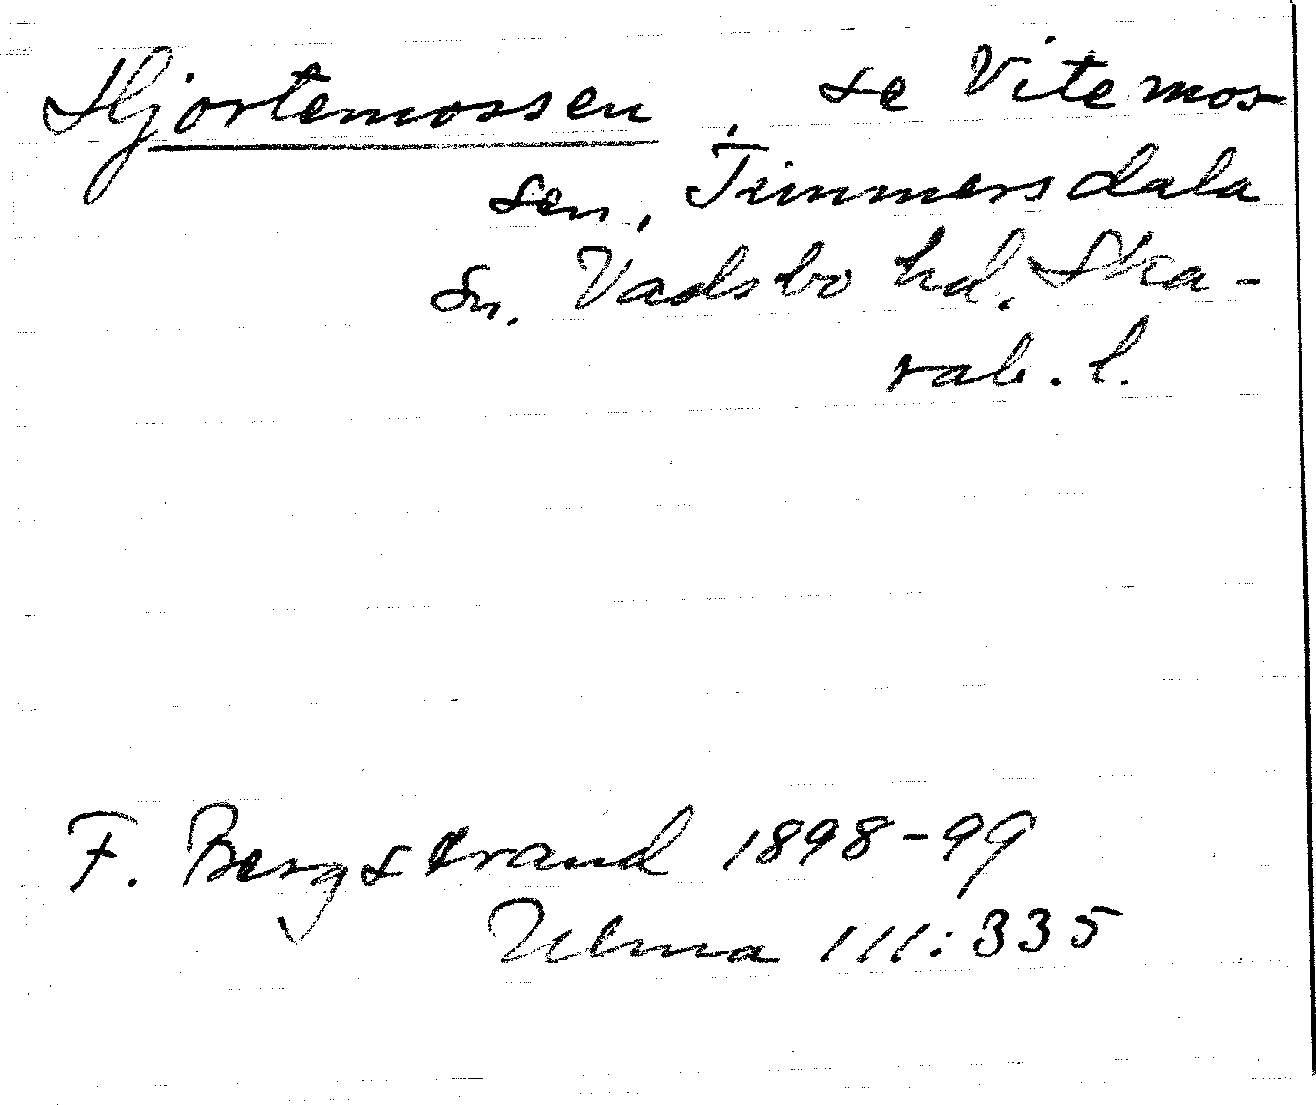 Hjortemossen, se Vitemos-
sen, Timmersdala
sn. Vadsbo hd. Ska-
rab. l.
F. Bergstrand 1898-99
Ulma 111:335